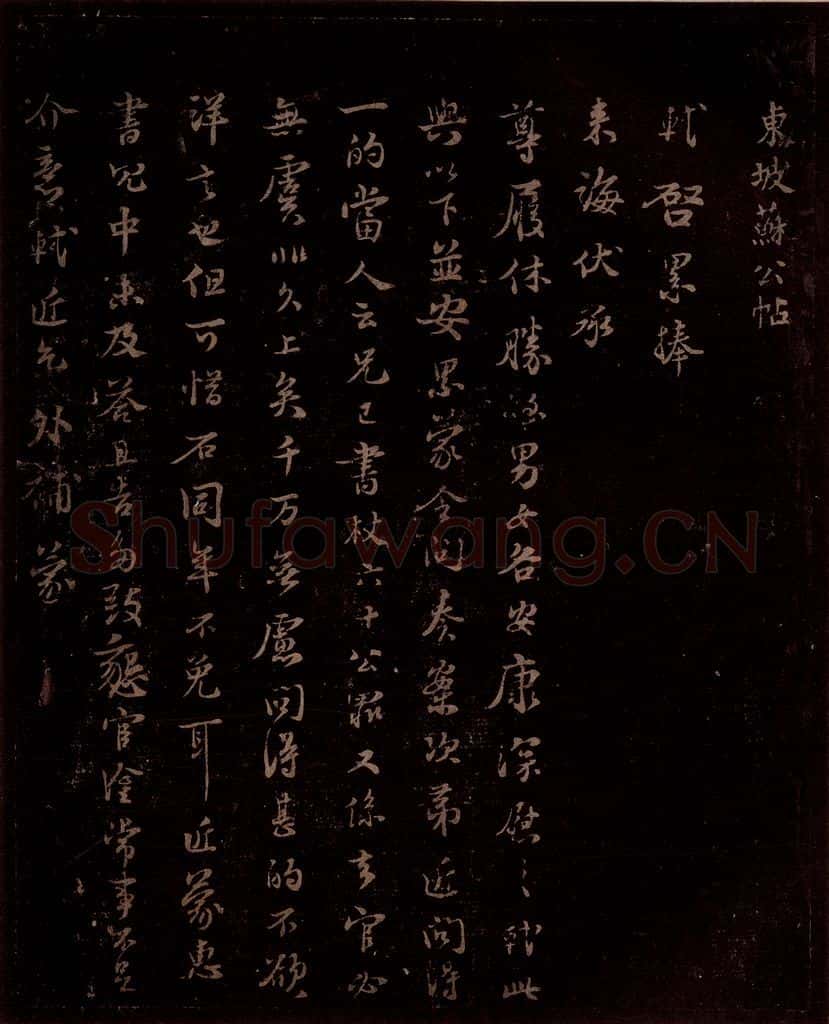 東坡蘇公帖
軾啓累捧
来誨伏承
尊履休勝眷男女各安康深慰〻軾此
與以下並安累蒙令問奏案次第近問得
一的當人云兄已書杖六十公罪又係去官必
無虞非久上矣千万無慮問得甚的不欲
詳言也但可惜石同年不免耳近蒙惠
書忽中未及答且喜為政
官
常事不足
介意軾近乞外補蒙
Shufawang.CN